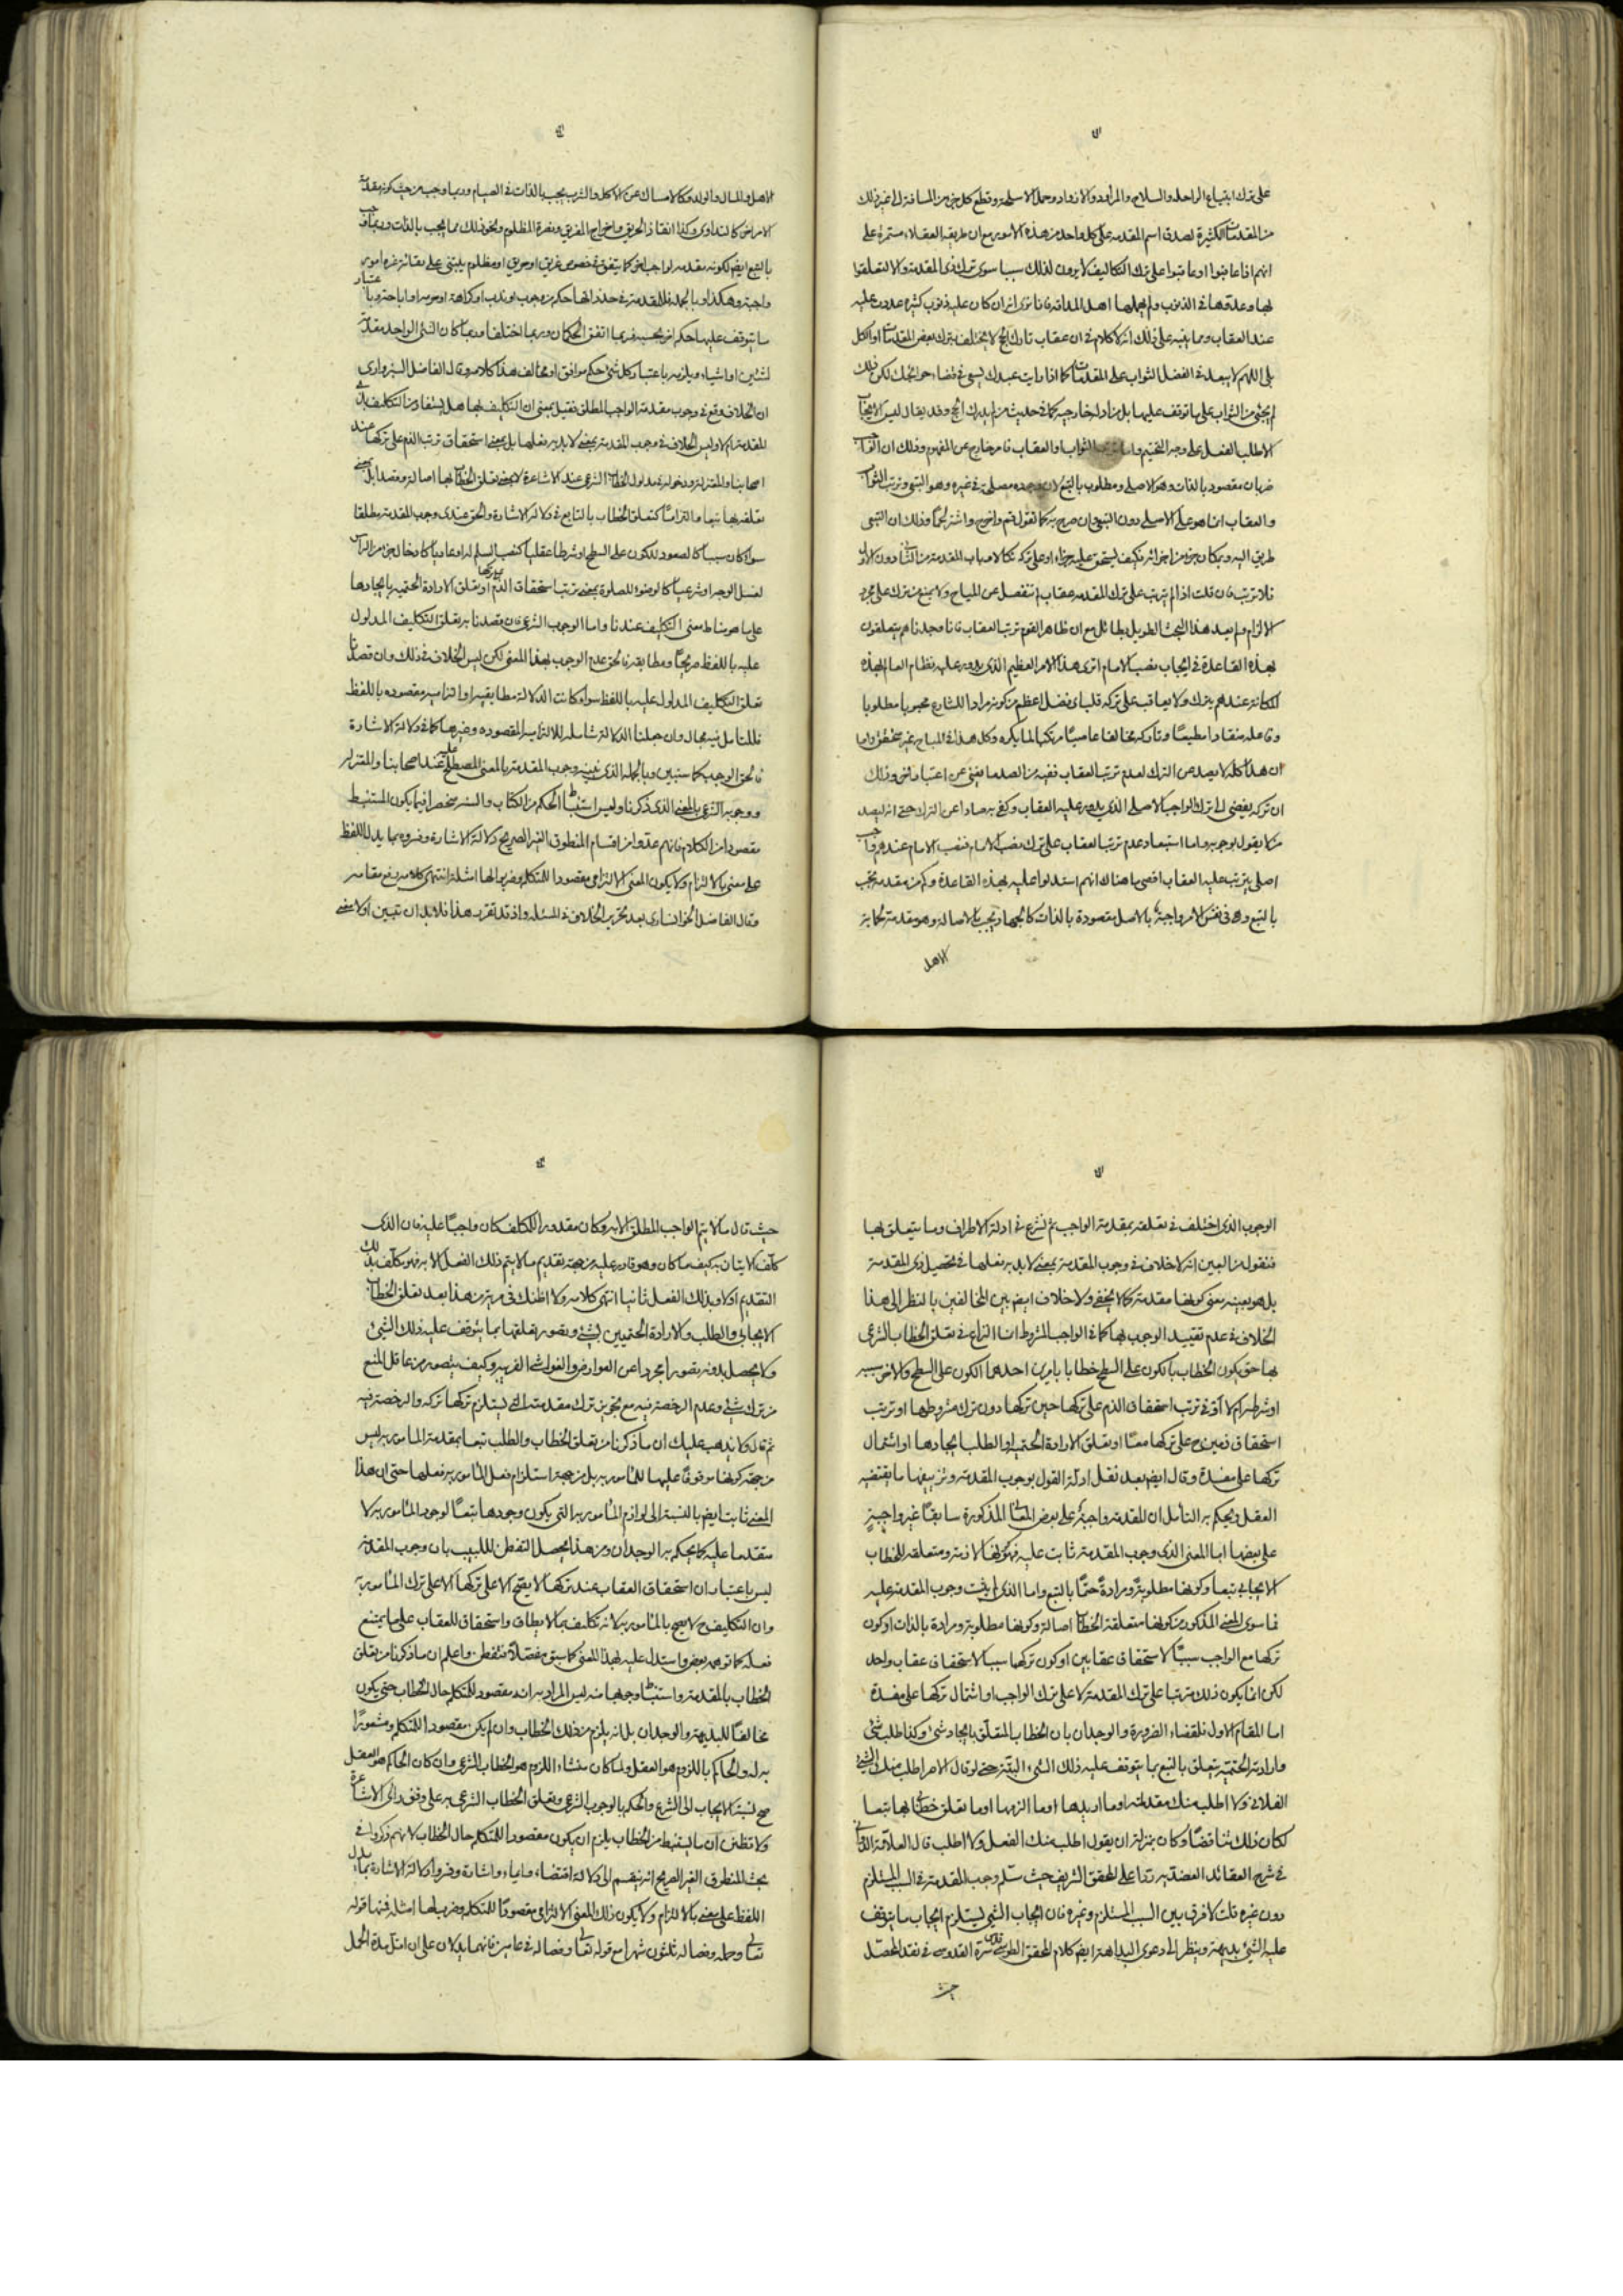 على ترك ابتياع الراحله والسلاح والمزاود والازواد وحمل الاسلحة وقطع كل جزء من المسافة الى غير ذلك
من المقدمات الكثيرة لصدق اسم المقدمه على كل واحد من هذه الامور مع ان طريقه العقلاء مستمرة على
انهم اذا عاتبوا او عاقبوا على ترك التكاليف لا يرون لذلك سببا سوى ترك ذى المقدمة والا لتعلقوا
بها وعدوها فى الذنوب ولم يهملها اهل المداقه فانا نرى ان كان عليه ذنوب كثيرة عددن عليه
عند العقاب ومما ينبه على ذلك انه لا كلام فى ان عقاب تارك الحج لا يختلف بترك بعض المقدمات او الكل
بلى اللهم لا يبعد فى الفضل الثواب على المقدمات كما اذا رايت عبدك يسعى فى قضاء حوائجك لكن ذلك
لم يجئ من الثواب على ما توقف عليها بل من ادلة خارجيه كما فى حديث من لم يدرك الحج وقد يقال ليس الايجاب
الا طلب الفعل على وجه التحتم واما ترتب الثواب او العقاب فامر خارج عن المفهوم وذلك ان الواجب
ضربان مقصود بالذات وهو الاصلى ومطلوب بالتبع لان وجده مصلحة فى غيره وهو التبعى وترتب الثواب
والعقاب انما هو على الاصلى دون التبعى وان صرح به كما تقول قم واخرج واشتر لحما وذلك ان التبعى
طريق اليه وبمكان جزء من اجزائه فكيف يستحق عليه جزاء او على تركه نكالا وباب المقدمة من الثانى دون الاول
فلا ترتب فان قلت اذا لم يترتب على ترك المقدمه عقاب لم تنفصل عن المباح ولا يمنع من ترك على مجرد
الالزام ولم يعد هذا البحث الطويل بطائل مع ان ظاهر القوم ترتب العقاب فانا وجدناهم يتعلقون
بهذه القاعدة فى ايجاب نصب الامام اترى هذا الامر العظيم الذى يدور عليه نظام العالم بهذه
المكانة عندهم يترك ولا يعاقب على تركه قلت اى فضل اعظم من كونه مرادا للشارع محبوبا مطلوبا
وفاعله منقادا مطيعًا وتاركه مخالفا عاصيًا مرتكبا لما يكره وكل هذا فى المباح غير متحقق واما
ان هذا كله لا يصد عن الترك لعدم ترتب العقاب ففيه من الصد ما يغنى عن اعتبار ما نحن وذلك
ان تركه يفضى الى ترك الواجب الاصلى الذى يدور عليه العقاب وكفى به صادا عن الترك حتى انه ليصد
من لا يقول بوجوبه واما استبعاد عدم ترتب العقاب على ترك نصب الامام فنصب الامام عندهم واجب
اصلى يترتب عليه العقاب اقصى ما هناك انهم استدلوا عليه بهذه القاعدة وكم من مقدمه تجب
بالتبع وهى فى نفس الامر واجبة بالاصل مقصودة بالذات كالجهاد يجب بالاصالة وهو مقدمة لحماية
الاهل
الاهل والمال والولد وكالامساك عن الاكل والشرب يجب بالذات فى الصيام وربما وجب من حيث كونه مقدمة
الامراض كالتداوى وكذا انقاذ الحريق واخراج الغريق ونصرة المظلوم ونحو ذلك مما يجب بالذات وربما وجب
بالتبع ايضا لكونه مقدمه لواجب اخر كما يتفق فى خصوص غريق او حريق او مظلوم يبتنى على بقائه غيره امور
واجبة وهكذا وبالجمله فللمقدمة فى حد ذاتها حكم من وجوب او ندب او كراهة او حرمة او اباحة وباعتبار
ما يتوقف عليها حكم اخر بحسبه فربما اتفق الحكمان وربما اختلفا وربما كان الشئ الواحد مقدمة
لشيئين او اشياء ويلزمه باعتبار كل شئ حكم موافق او مخالف هذا كلامه وقال الفاضل السبزوارى
ان الخلاف وقع فى وجوب مقدمة الواجب المطلق فقيل بمعنى ان التكليف بها هل يستفاد من التكليف بذى
المقدمة ام لا وليس الخلاف فى وجوب المقدمة بمعنى لابد من فعلها بل بمعنى استحقاق ترتب الذم على تركها عند
اصحابنا والمعتزلة ودخوله تحت مدلول الخطاب الشرعى عند الاشاعرة لا بمعنى تعلق الخطاب بها اصالة وقصدا بل بمعنى
تعلقه بها تبعا والتزاما كتعلق الخطاب بالتابع فى دلالة الاشارة والحق عندى وجوب المقدمة مطلقا
سواء كان سببا كالصعود للكون على السطح او شرطا عقليا كنصب السلم له او عاديا كادخال جزء من الراس
لغسل الوجه او شرعيا كالوضوء للصلوة بمعنى ترتب استحقاق الذم بتركها او تعلق الارادة الحتميه بايجادها
على ما هو مناط معنى التكليف عندنا واما الوجوب الشرعى فان قصدنا به تعلق التكليف المدلول
عليه باللفظ صريحًا ومطابقة فالحق عدم الوجوب بهذا المعنى لكن ليس الخلاف فى ذلك وان قصدنا
تعلق التكليف المدلول عليه باللفظ سواء كانت الدلالة مطابقيه او التزاميه مقصوده باللفظ
فللتامل فيه مجال وان جعلنا الدلالة شاملة للالتزاميه المقصوده وغيرها كما فى دلالة الاشارة
فالحق الوجوب كما سنبين وبالجملة الذى نعنيه وجوب المقدمة بالمعنى المصطلح عليه عند اصحابنا والمعتزلة
ووجوبه الشرعى بالمعنى الذى ذكرنا وليس استنباط الحكم من الكتاب والسنه منحصرا فيما يكون المستنبط
مقصودا من الكلام فانهم عدوا من اقسام المنطوق الغير الصريح دلالة الاشارة وفسروه بما يدل اللفظ
على معنى بالالتزام ولا يكون المعنى الالتزامى مقصودا للمتكلم وضربوا لها امثلة انتهى كلامه رفع مقامه
وقال الفاضل الخوانسارى بعد تحرير الخلاف فى المسئلة واذ قد تقرر هذا فلابد ان نبين اولا معنى
الوجوب الذى اختلف فى تعلقه بمقدمة الواجب ثم نشرع فى ادلة الاطراف وما يتعلق بها
فنقول من البين انه لا خلاف فى وجوب المقدمة بمعنى لابد من فعلها فى تحصيل ذى المقدمة
بل هو بعينه معنى كونها مقدمة كما لا يخفى ولا خلاف ايضا بين المخالفين بالنظر الى هذا
الخلاف فى عدم تقييد الوجوب بها كما فى الواجب المشروط انما النزاع فى تعلق الخطاب الشرعى
بها حتى يكون الخطاب بالكون على السطح خطابا بامرين احدهما الكون على السطح والاخر سببه
او شرطه ام لا او فى ترتب استحقاق الذم على تركها حين تركها دون ترك مشروطها او ترتب
استحقاق ذمين ح على تركها معًا او تعلق الارادة الحتميه او الطلب بايجادها او اشتمال
تركها على مفسدة وقال ايضا بعد نقل ادلة القول بوجوب المقدمة وتزييفها ما يقتضيه
العقل ويحكم به التأمل ان المقدمة واجبة على بعض المعانى المذكورة سابقًا غير واجبة
على بعضها اما المعنى الذى وجوب المقدمة ثابت عليه فهو كونها لازمة ومتعلقه للخطاب
الايجابى تبعا وكونها مطلوبة ومرادة حتمًا بالتبع واما الذى لم يثبت وجوب المقدمة عليه
فما سوى المعنى المذكور من كونها متعلقة الخطاب اصالة وكونها مطلوبة ومرادة بالذات او كون
تركها مع الواجب سببًا لاستحقاق عقابين او كون تركها سببا لاستحقاق عقاب واحد
لكن انما يكون ذلك مترتبا على ترك المقدمة لا على ترك الواجب او اشتمال تركها على مفسدة
اما المقام الاول فلقضاء الضرورة والوجدان بان الخطاب المتعلّق بايجاد شئ وكذا طلب شئ
وارادته الحتميه يتعلق بالتبع بما يتوقف عليه ذلك الشئ البتة حتى لو قال الامر اطلب منك الشئ
الفلانى ولا اطلب منك مقدماته او ما اريدها او ما الزمها او ما تعلق خطابى بها تبعا
لكان ذلك مناقضًا وكان بمنزلة ان يقول اطلب منك الفعل ولا اطلب قال العلامة الدوانى
فى شرح العقائد العضديه ردا على المحقق الشريف حيث سلّم وجوب المقدمة فى السبب المستلزم
دون غيره قلت لا فرق بين السبب المستلزم وغيره فان ايجاب الشئ يستلزم ايجاب ما يتوقف
عليه الشئ بديهة وينظر الى دعوى البداهة ايضا كلام المحقق الطوسى قدس سره القدوسى فى نقد المحصل
حيث
حيث قال ما لا يتم الواجب المطلق الا به وكان مقدورا للمكلف كان واجبًا عليه فان الذى
كلف الاتيان به كيف ما كان وهو قادر عليه من جهة تقديم ما لا يتم ذلك الفعل الا به فهو مكلف بذلك
التقديم اولا وبذلك الفعل ثانيا انتهى كلامه ولا اظنك فى مرية من هذا بعد تعلق الخطاب
الايجابى والطلب والارادة الحتميين بشئ وتصور تعلقها بما يتوقف عليه ذلك الشئ
ولا يحصل بدونه تصورا مجردا عن العوارض والغواشى الغريبه وكيف يتصور من عاقل المنع
من ترك شئ وعدم الرخصة فيه مع تجويز ترك مقدمته التى يستلزم تركها تركه والرخصة فيه
ثم قال ولا يذهب عليك ان ما ذكرنا من تعلق الخطاب والطلب تبعا بمقدمة المامور به ليس
من جهة كونها موقوفًا عليها للمأمور به بل من جهة استلزام فعل المأمور به فعلها حتى ان هذا
المعنى ثابت ايضا بالنسبة الى لوازم المأمور به التى يكون وجودها تبعًا لوجود المأمور به لا
متقدما عليه كما يحكم به الوجدان ومن هذا يحصل التفطن للبيب بان وجوب المقدمة
ليس باعتبار ان استحقاق العقاب عند تركها لا يقع الا على تركها لا على ترك المأمور به
وان التكليف ح لا يصح بالمأمور به لانه تكليف بما لا يطاق واستحقاق للعقاب على ما يمتنع
فعله كما توهمه بعض واستدل عليه بهذا المعنى كما سبق مفصلاً فتفطن واعلم ان ما ذكرنا من تعلق
الخطاب بالمقدمة واستنباط وجوبها منه ليس المراد به انه مقصود للمتكلم حال الخطاب حتى يكون
مخالفًا للبديهة والوجدان بل انه يلزم من ذلك الخطاب وان لم يكن مقصودا للمتكلم ومشعورًا
به له والحاكم باللزوم هو العقل ولما كان منشاء اللزوم هو الخطاب الشرعى وان كان الحاكم هو العقل
صح نسبة الايجاب الى الشرع والحكم بالوجوب الشرعى وتعلق الخطاب الشرعى به على وفق راى الاشاعرة
ولا تظنن ان ما يستنبط من الخطاب يلزم ان يكون مقصودا للمتكلم حال الخطاب لانهم ذكروا فى
بحث المنطوق الغير الصريح انه ينقسم الى دلالة اقتضاء وايماء واشارة وفسروا دلالة الاشارة بما يدل
اللفظ على معنى بالالتزام ولا يكون ذلك المعنى الالتزامى مقصودًا للمتكلم وضرب لها امثله فمنها قوله
تعالى وحمله وفصاله ثلثون شهرا مع قوله تعالى وفصاله فى عامين فانهما يدلان على ان اقل مدة الحمل